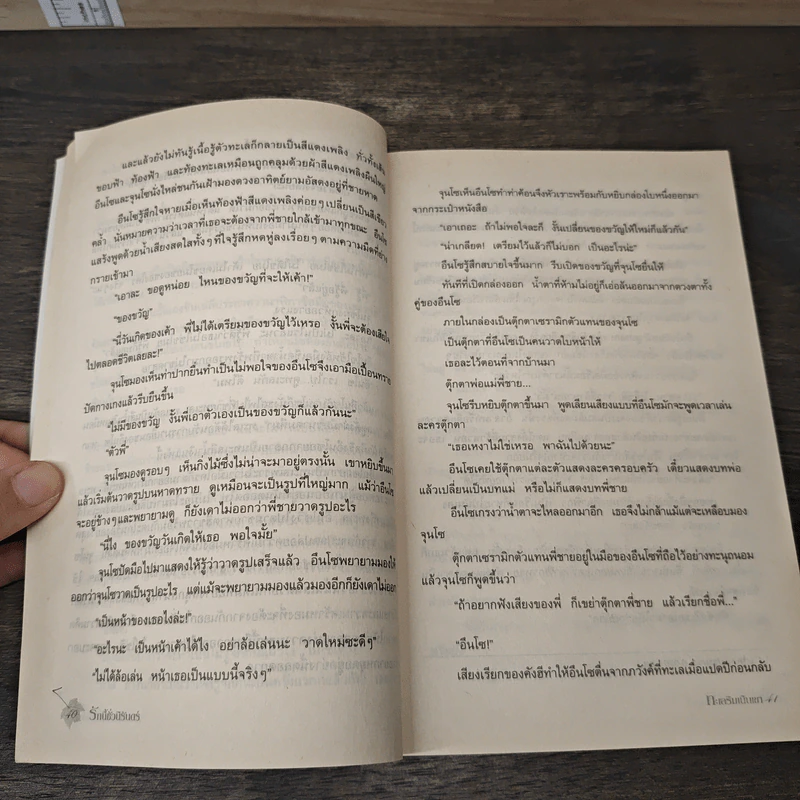 และแล้วยังไม่ทันรู้เนื้อรู้ตัวทะเลก็กลายเป็นสีแดงเพลิง ทั่วทั้งเส้น
ขอบฟ้า ท้องฟ้า และท้องทะเลเหมือนถูกคลุมด้วยผ้าสีแดงเพลิงผืนใหญ่
อึนโซและจุนโซนั่งไหล่ชนกันเฝ้ามองดวงอาทิตย์ยามอัสดงอยู่ที่ชายหาด
อึนโซรู้สึกใจหายเมื่อเห็นท้องฟ้าสีแดงเพลิงค่อยๆ เปลี่ยนเป็นสีเขียว
คล้ำ นั่นหมายความว่าเวลาที่เธอจะต้องจากพี่ชายใกล้เข้ามาทุกขณะ อึนโซ
แสร้งพูดด้วยน้ำเสียงสดใสทั้งๆ ที่ใจรู้สึกหดหู่ลงเรื่อยๆ ตามความมืดที่ย่าง
กรายเข้ามา
"เอาละ ขอดูหน่อย ไหนของขวัญที่จะให้เค้า!"
"ของขวัญ"
"นี่วันเกิดของเค้า พี่ไม่ได้เตรียมของขวัญไว้เหรอ งั้นพี่จะต้องเสียใจ
ไปตลอดชีวิตเลยละ!"
จุนโซมองเห็นท่าปากยื่นทำเป็นไม่พอใจของอึนโซจึงเอามือเปื้อนทราย
ปัดกางเกงแล้วรีบยืนขึ้น
"ไม่มีของขวัญ งั้นพี่เอาตัวเองเป็นของขวัญก็แล้วกันนะ"
"ตัวพี่"
จุนโซมองดูรอบๆ เห็นกิ่งไม้ซึ่งไม่น่าจะมาอยู่ตรงนั้น เขาหยิบขึ้นมา
แล้วเริ่มต้นวาดรูปบนหาดทราย ดูเหมือนจะเป็นรูปที่ใหญ่มาก แม้ว่าอึนโซ
จะอยู่ข้างๆ และพยายามดู ก็ยังเดาไม่ออกว่าพี่ชายวาดรูปอะไร
"นี่ไง ของขวัญวันเกิดให้เธอ พอใจมั้ย"
จุนโซปัดมือไปมาแสดงให้รู้ว่าวาดรูปเสร็จแล้ว อึนโซพยายามมองให้
ออกว่าจุนโซวาดเป็นรูปอะไร แต่แม้จะพยายามมองแล้วมองอีกก็ยังเดาไม่ออก
"เป็นหน้าของเธอไงล่ะ!"
"อะไรนะ เป็นหน้าเค้าได้ไง อย่าล้อเล่นนะ วาดใหม่ซะดีๆ"
"ไม่ได้ล้อเล่น หน้าเธอเป็นแบบนี้จริงๆ"
40 รักนี้ชั่วนิรันดร์
จุนโซเห็นอึนโซทำท่าค้อนจึงหัวเราะพร้อมกับหยิบกล่องใบหนึ่งออกมา
จากกระเป๋าหนังสือ
"เอาเถอะ ถ้าไม่พอใจละก็ งั้นเปลี่ยนของขวัญให้ใหม่ก็แล้วกัน"
"น่าเกลียด! เตรียมไว้แล้วก็ไม่บอก เป็นอะไรน่ะ"
อึนโซรู้สึกสบายใจขึ้นมาก รีบเปิดของขวัญที่จุนโซยื่นให้
ทันทีที่เปิดกล่องออก น้ำตาที่ห้ามไม่อยู่ก็เอ่อล้นออกมาจากดวงตาทั้ง
คู่ของอึนโซ
ภายในกล่องเป็นตุ๊กตาเซรามิกตัวแทนของจุนโซ
เป็นตุ๊กตาที่อึนโซเป็นคนวาดใบหน้าให้
เธอละไว้ตอนที่จากบ้านมา
ตุ๊กตาพ่อแม่พี่ชาย...
จุนโซรีบหยิบตุ๊กตาขึ้นมา พูดเลียนเสียงแบบที่อึนโซมักจะพูดเวลาเล่น
ละครตุ๊กตา
"เธอเหงาไม่ใช่เหรอ พาฉันไปด้วยนะ"
อึนโซเคยใช้ตุ๊กตาแต่ละตัวแสดงละครครอบครัว เดี๋ยวแสดงบทพ่อ
แล้วเปลี่ยนเป็นบทแม่ หรือไม่ก็แสดงบทพี่ชาย
อึนโซเกรงว่าน้ำตาจะไหลออกมาอีก เธอจึงไม่กล้าแม้แต่จะเหลือบมอง
จุนโซ
ตุ๊กตาเซรามิกตัวแทนพี่ชายอยู่ในมือของอึนโซที่ถือไว้อย่างทะนุถนอม
แล้วจุนโซก็พูดขึ้นว่า
"ถ้าอยากฟังเสียงของพี่ ก็เขย่าตุ๊กตาพี่ชาย แล้วเรียกชื่อพี่..."
"อึนโซ!"
เสียงเรียกของคังฮีทำให้อึนโซตื่นจากภวังค์ที่ทะเลเมื่อแปดปีก่อนกลับ
41